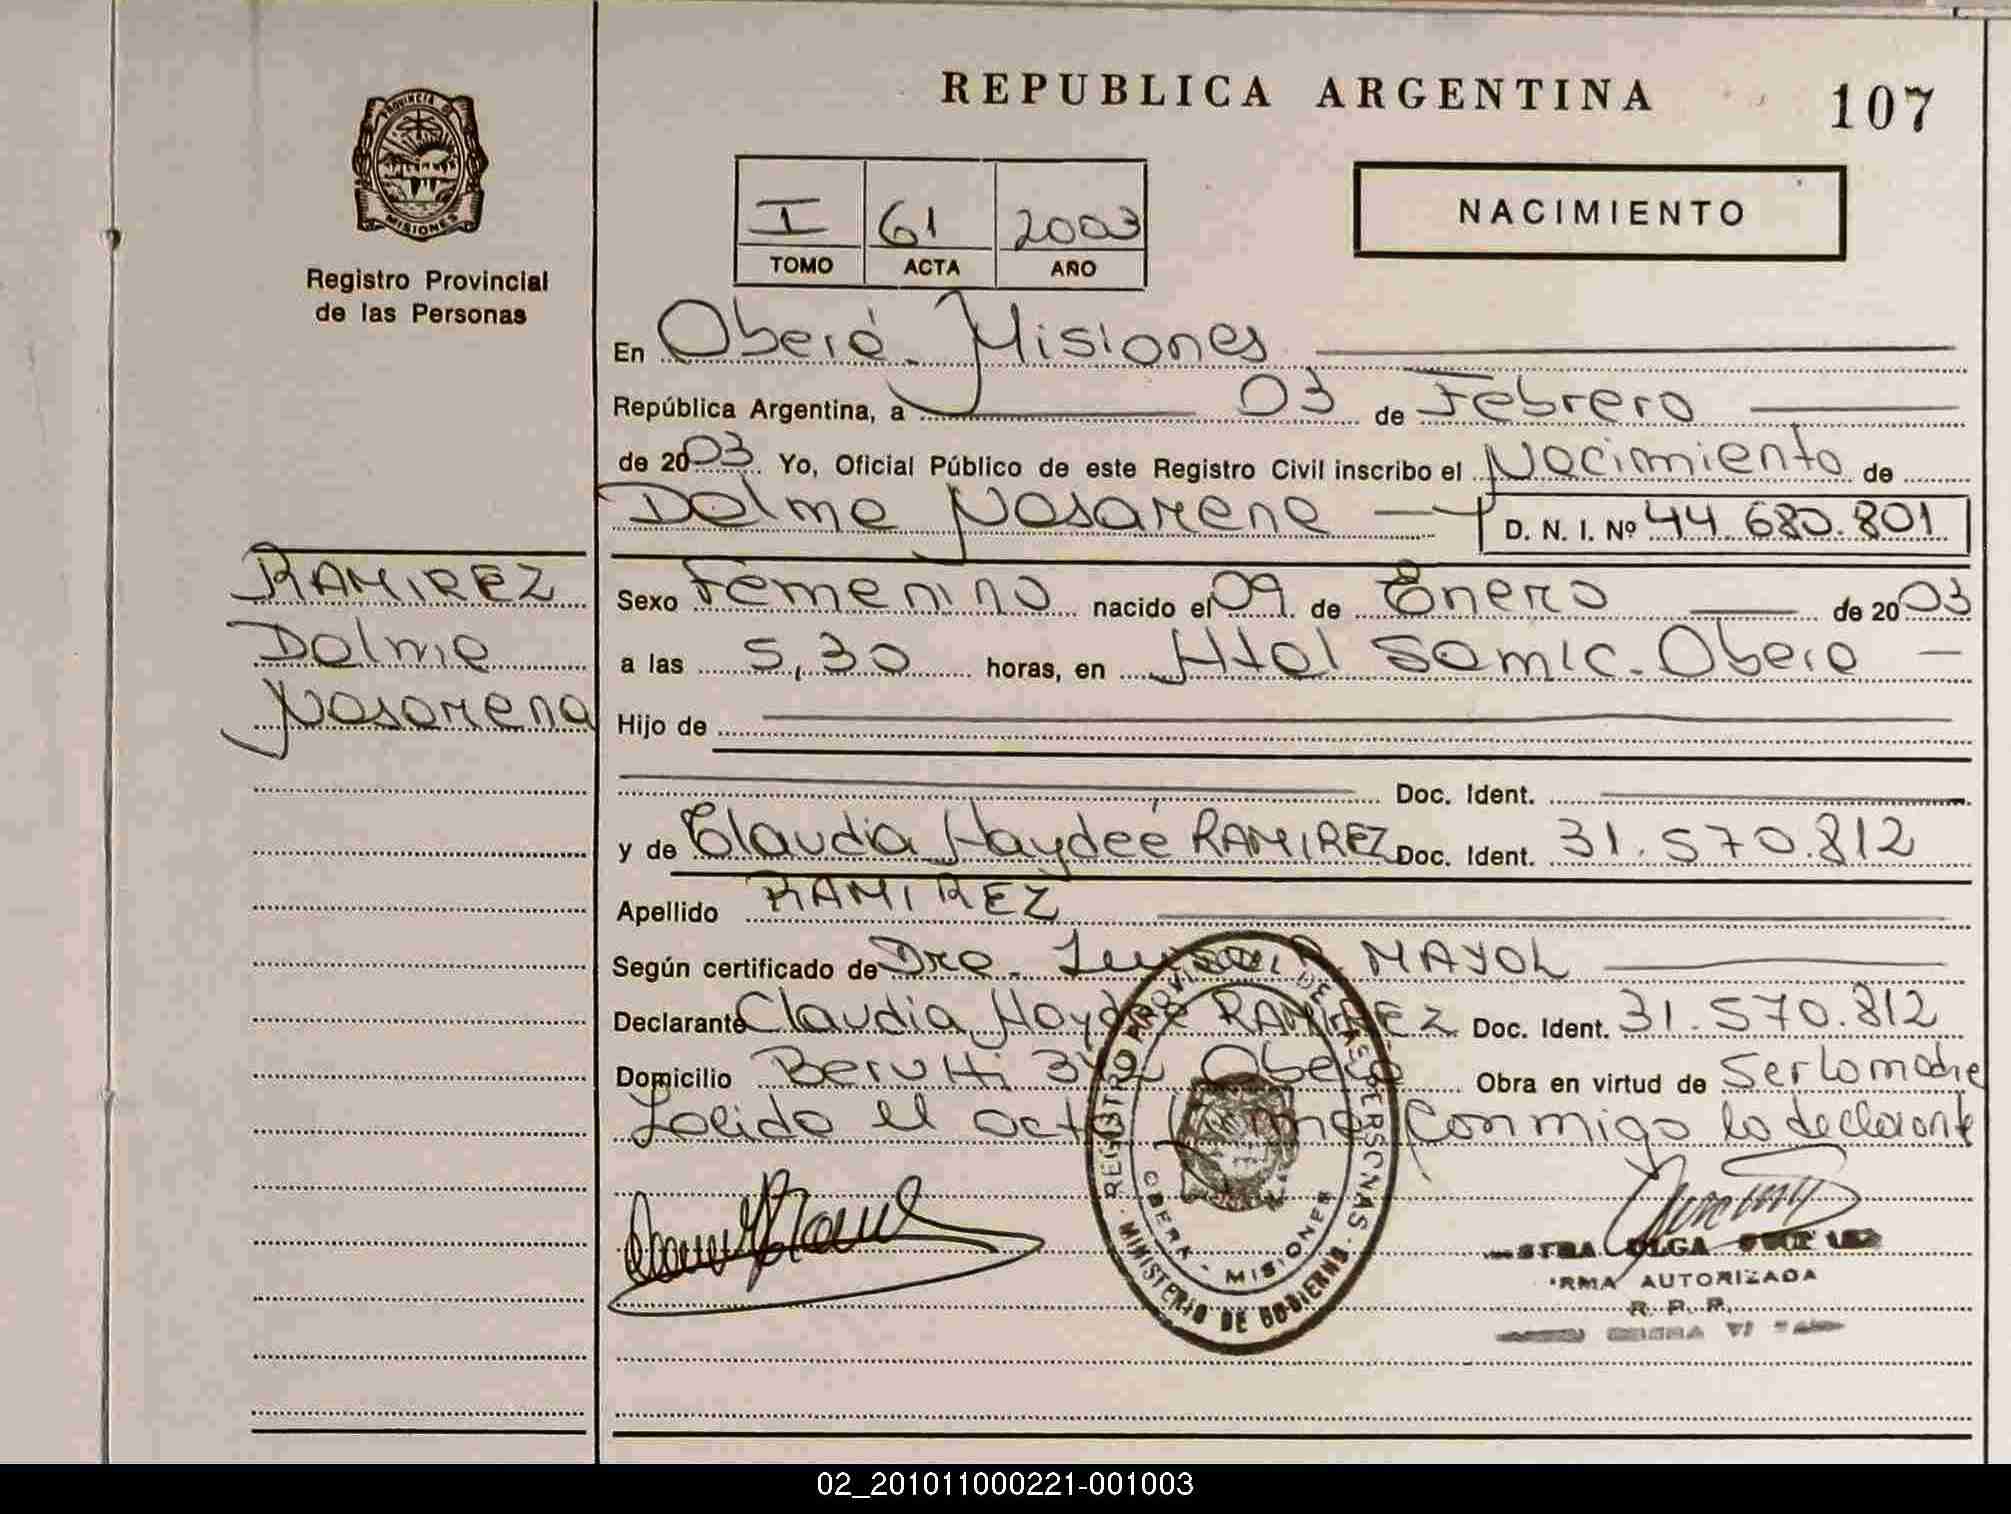 REPUBLICA ARGENTINA
107
PROVINCIA DE
MISIONES
Registro Provincial
de las Personas
I 61 2003
TOMO ACTA AÑO
NACIMIENTO
En Oberá. Misiones
República Argentina, a 03 de Febrero
de 2003 Yo, Oficial Público de este Registro Civil inscribo el Nacimiento de
Dalma Nasarena D. N. I. Nº 44.680.801
RAMIREZ
Dalma
Nasarena
Sexo Femenino nacido el 09 de Enero de 2003
a las 5,30 horas, en Htal Samic. Oberá
Hijo de
Doc. Ident.
y de Claudia Haydeé RAMIREZ Doc. Ident. 31.570.812
Apellido RAMIREZ
Según certificado de Dra. MAYOL
Declarante Claudia Haydeé RAMIREZ Doc. Ident. 31.570.812
Domicilio Berutti Oberá Obra en virtud de Ser la madre
Leida el acta firma conmigo la declarante
REGISTRO PROVINCIAL DE LAS PERSONAS
MINISTERIO DE GOBIERNO
OBERA - MISIONES
OLGA
FIRMA AUTORIZADA
R. P. P.
02_201011000221-001003